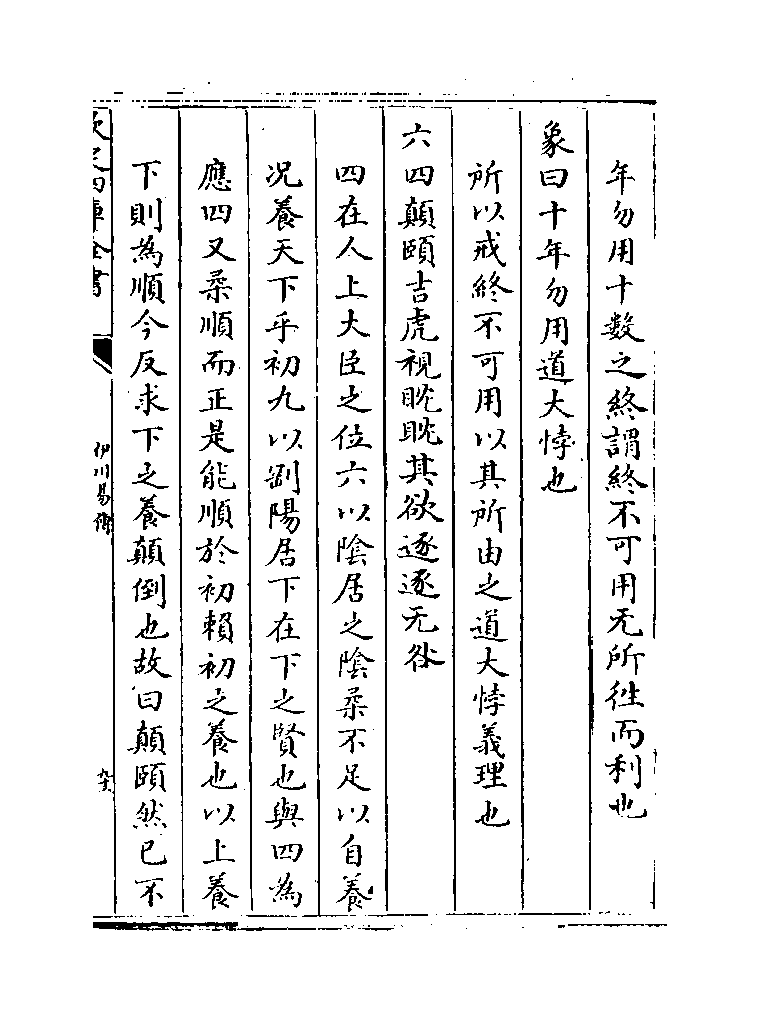 年勿用十數之終謂終不可用无所往而利也
象曰十年勿用道大悖也
所以戒終不可用以其所由之道大悖義理也
六四顛頤吉虎視眈眈其欲逐逐无咎
四在人上大臣之位六以陰居之陰柔不足以自養
况養天下乎初九以剛陽居下在下之賢也與四為
應四又柔順而正是能順於初賴初之養也以上養
下則為順今反求下之養顛倒也故曰顛頤然已不
欽定四庫全書
伊川易傳